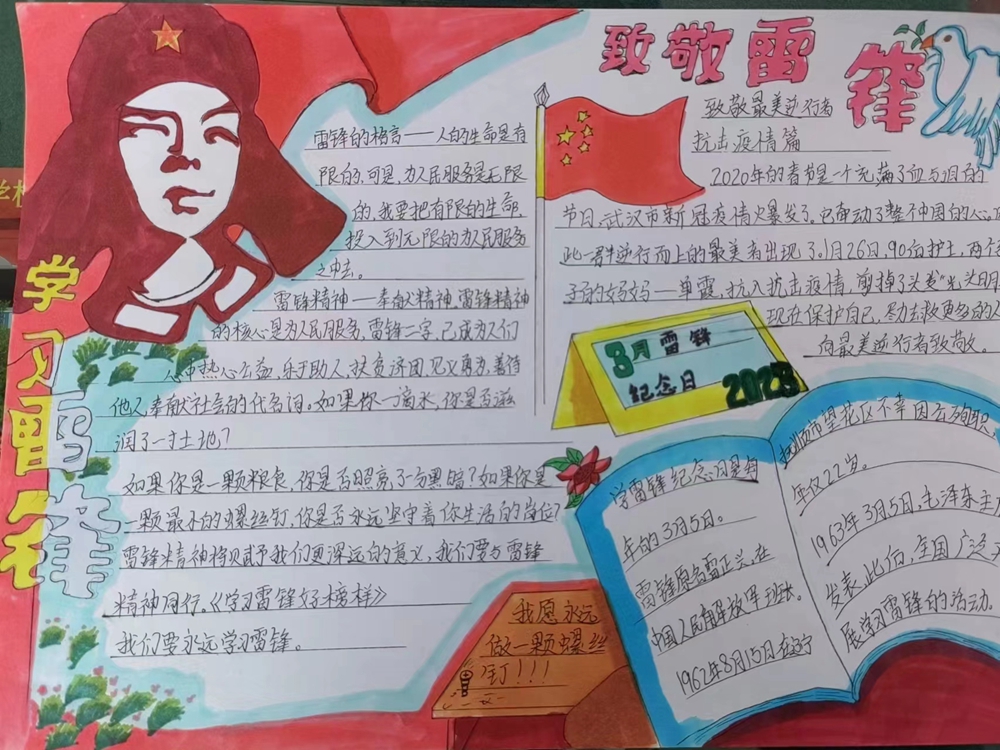 致敬雷锋
学习雷锋
雷锋的格言——人的生命是有
限的,可是,为人民服务是无限
的,我要把有限的生命,
投入到无限的为人民服务
之中去。
雷锋精神——奉献精神,雷锋精神
的核心是为人民服务,雷锋二字,已成为人们
热心公益,乐于助人,扶贫济困,见义勇为,善待
他人,奉献社会的代名词。如果你一滴水,你是否滋
润了一寸土地?
如果你是一颗粮食,你是否照亮了分黑暗?如果你是
一颗最小的螺丝钉,你是否永远坚守着你生活的岗位?
雷锋精神将赋予我们更深远的意义,我们要与雷锋
精神同行。《学习雷锋好榜样》
我们要永远学习雷锋。
致敬最美逆行者
抗击疫情篇
2020年的春节是一个充满了血与泪的
节日,武汉市新冠疫情爆发了,也牵动了整个中国的人心
此一群逆行而上的最美者出现了。1月26日,90后护士,两个
子的妈妈——单霞,投入抗击疫情,剪掉了头发"光头
现在保护自己,尽力去救更多的人
向最美逆行者致敬。
3月雷锋
纪念日
2023
学雷锋纪念日是每
年的3月5日。
雷锋原名雷正兴,在
中国人民解放军班长。
1962年8月15日在辽宁
抚顺市望花区不幸因公殉职
年仅22岁。
1963年3月5日,毛泽东主
发表,此后,全国广泛开
展学习雷锋的活动。
我愿永远
做一颗螺丝
钉!!!